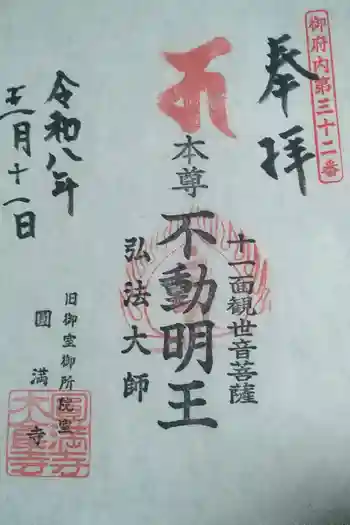 御府内第三十二番
奉拝
十一面観世音菩薩
本尊 不動明王
弘法大師
旧御室御所院室
圓満寺
令和八年
正月十一日